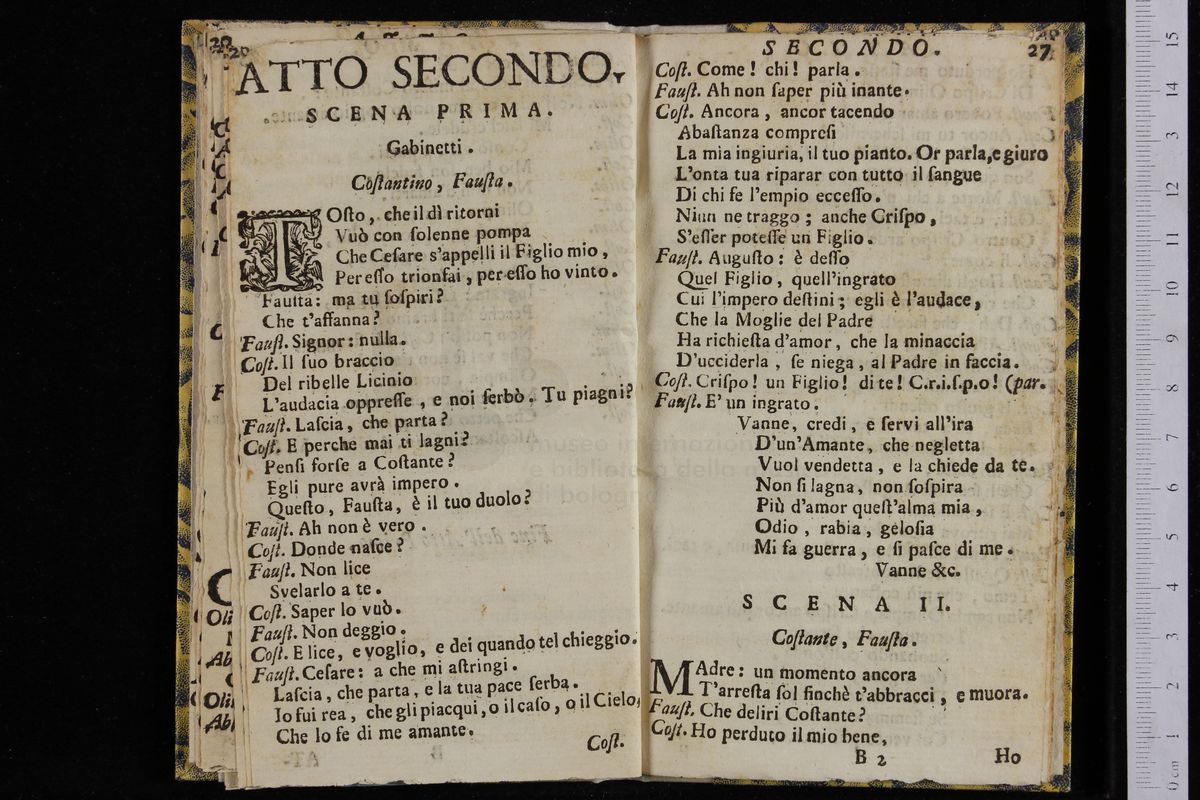 ATTO SECONDO.
SCENA PRIMA.
Gabinetti.
Coſtantino, Fauſta.
TOſto, che il dì ritorni
Vuò con ſolenne pompa
Che Ceſare s'appelli il Figlio mio,
Per eſſo trionfai, per eſſo ho vinto.
Fauſta: ma tu ſoſpiri?
Che t'affanna?
Fauſt. Signor: nulla.
Coſt. Il ſuo braccio
Del ribelle Licinio
L'audacia oppreſſe, e noi ſerbò. Tu piagni?
Fauſt. Laſcia, che parta?
Coſt. E perche mai ti lagni?
Penſi forſe a Coſtante?
Egli pure avrà impero.
Queſto, Fauſta, è il tuo duolo?
Fauſt. Ah non è vero.
Coſt. Donde naſce?
Fauſt. Non lice
Svelarlo a te.
Coſt. Saper lo vuò.
Fauſt. Non deggio.
Coſt. E lice, e voglio, e dei quando tel chieggio.
Fauſt. Ceſare: a che mi aſtringi.
Laſcia, che parta, e la tua pace ſerba.
Io fui rea, che gli piacqui, o il caſo, o il Cielo,
Che lo fe di me amante.
Coſt.
SECONDO. 27
Coſt. Come! chi! parla.
Fauſt. Ah non ſaper più inante.
Coſt. Ancora, ancor tacendo
Abaſtanza compreſi
La mia ingiuria, il tuo pianto. Or parla, e giuro
L'onta tua riparar con tutto il ſangue
Di chi fe l'empio ecceſſo.
Niun ne traggo; anche Criſpo,
S'eſſer poteſſe un Figlio.
Fauſt. Auguſto: è deſſo
Quel Figlio, quell'ingrato
Cui l'impero deſtini; egli è l'audace,
Che la Moglie del Padre
Ha richieſta d'amor, che la minaccia
D'ucciderla, ſe niega, al Padre in faccia.
Coſt. Criſpo! un Figlio! di te! C.r.i.ſ.p.o! (par.
Fauſt. E' un ingrato.
Vanne, credi, e ſervi all'ira
D'un'Amante, che negletta
Vuol vendetta, e la chiede da te.
Non ſi lagna, non ſoſpira
Più d'amor queſt'alma mia,
Odio, rabia, geloſia
Mi fa guerra, e ſi paſce di me.
Vanne &c.
SCENA II.
Coſtante, Fauſta.
MAdre: un momento ancora
T'arreſta ſol finchè t'abbracci, e muora.
Fauſt. Che deliri Coſtante?
Coſt. Ho perduto il mio bene,
B 2 Ho